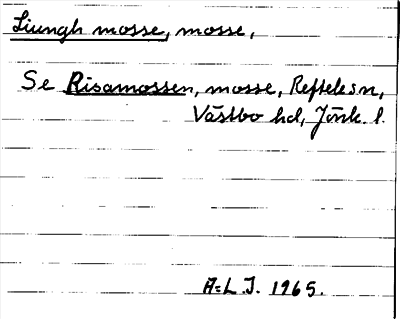 Liungh mosse, mosse,
Se Risamossen, mosse, Reftele sn,
Västbo hd, Jönk. l.
A:L J. 1965.